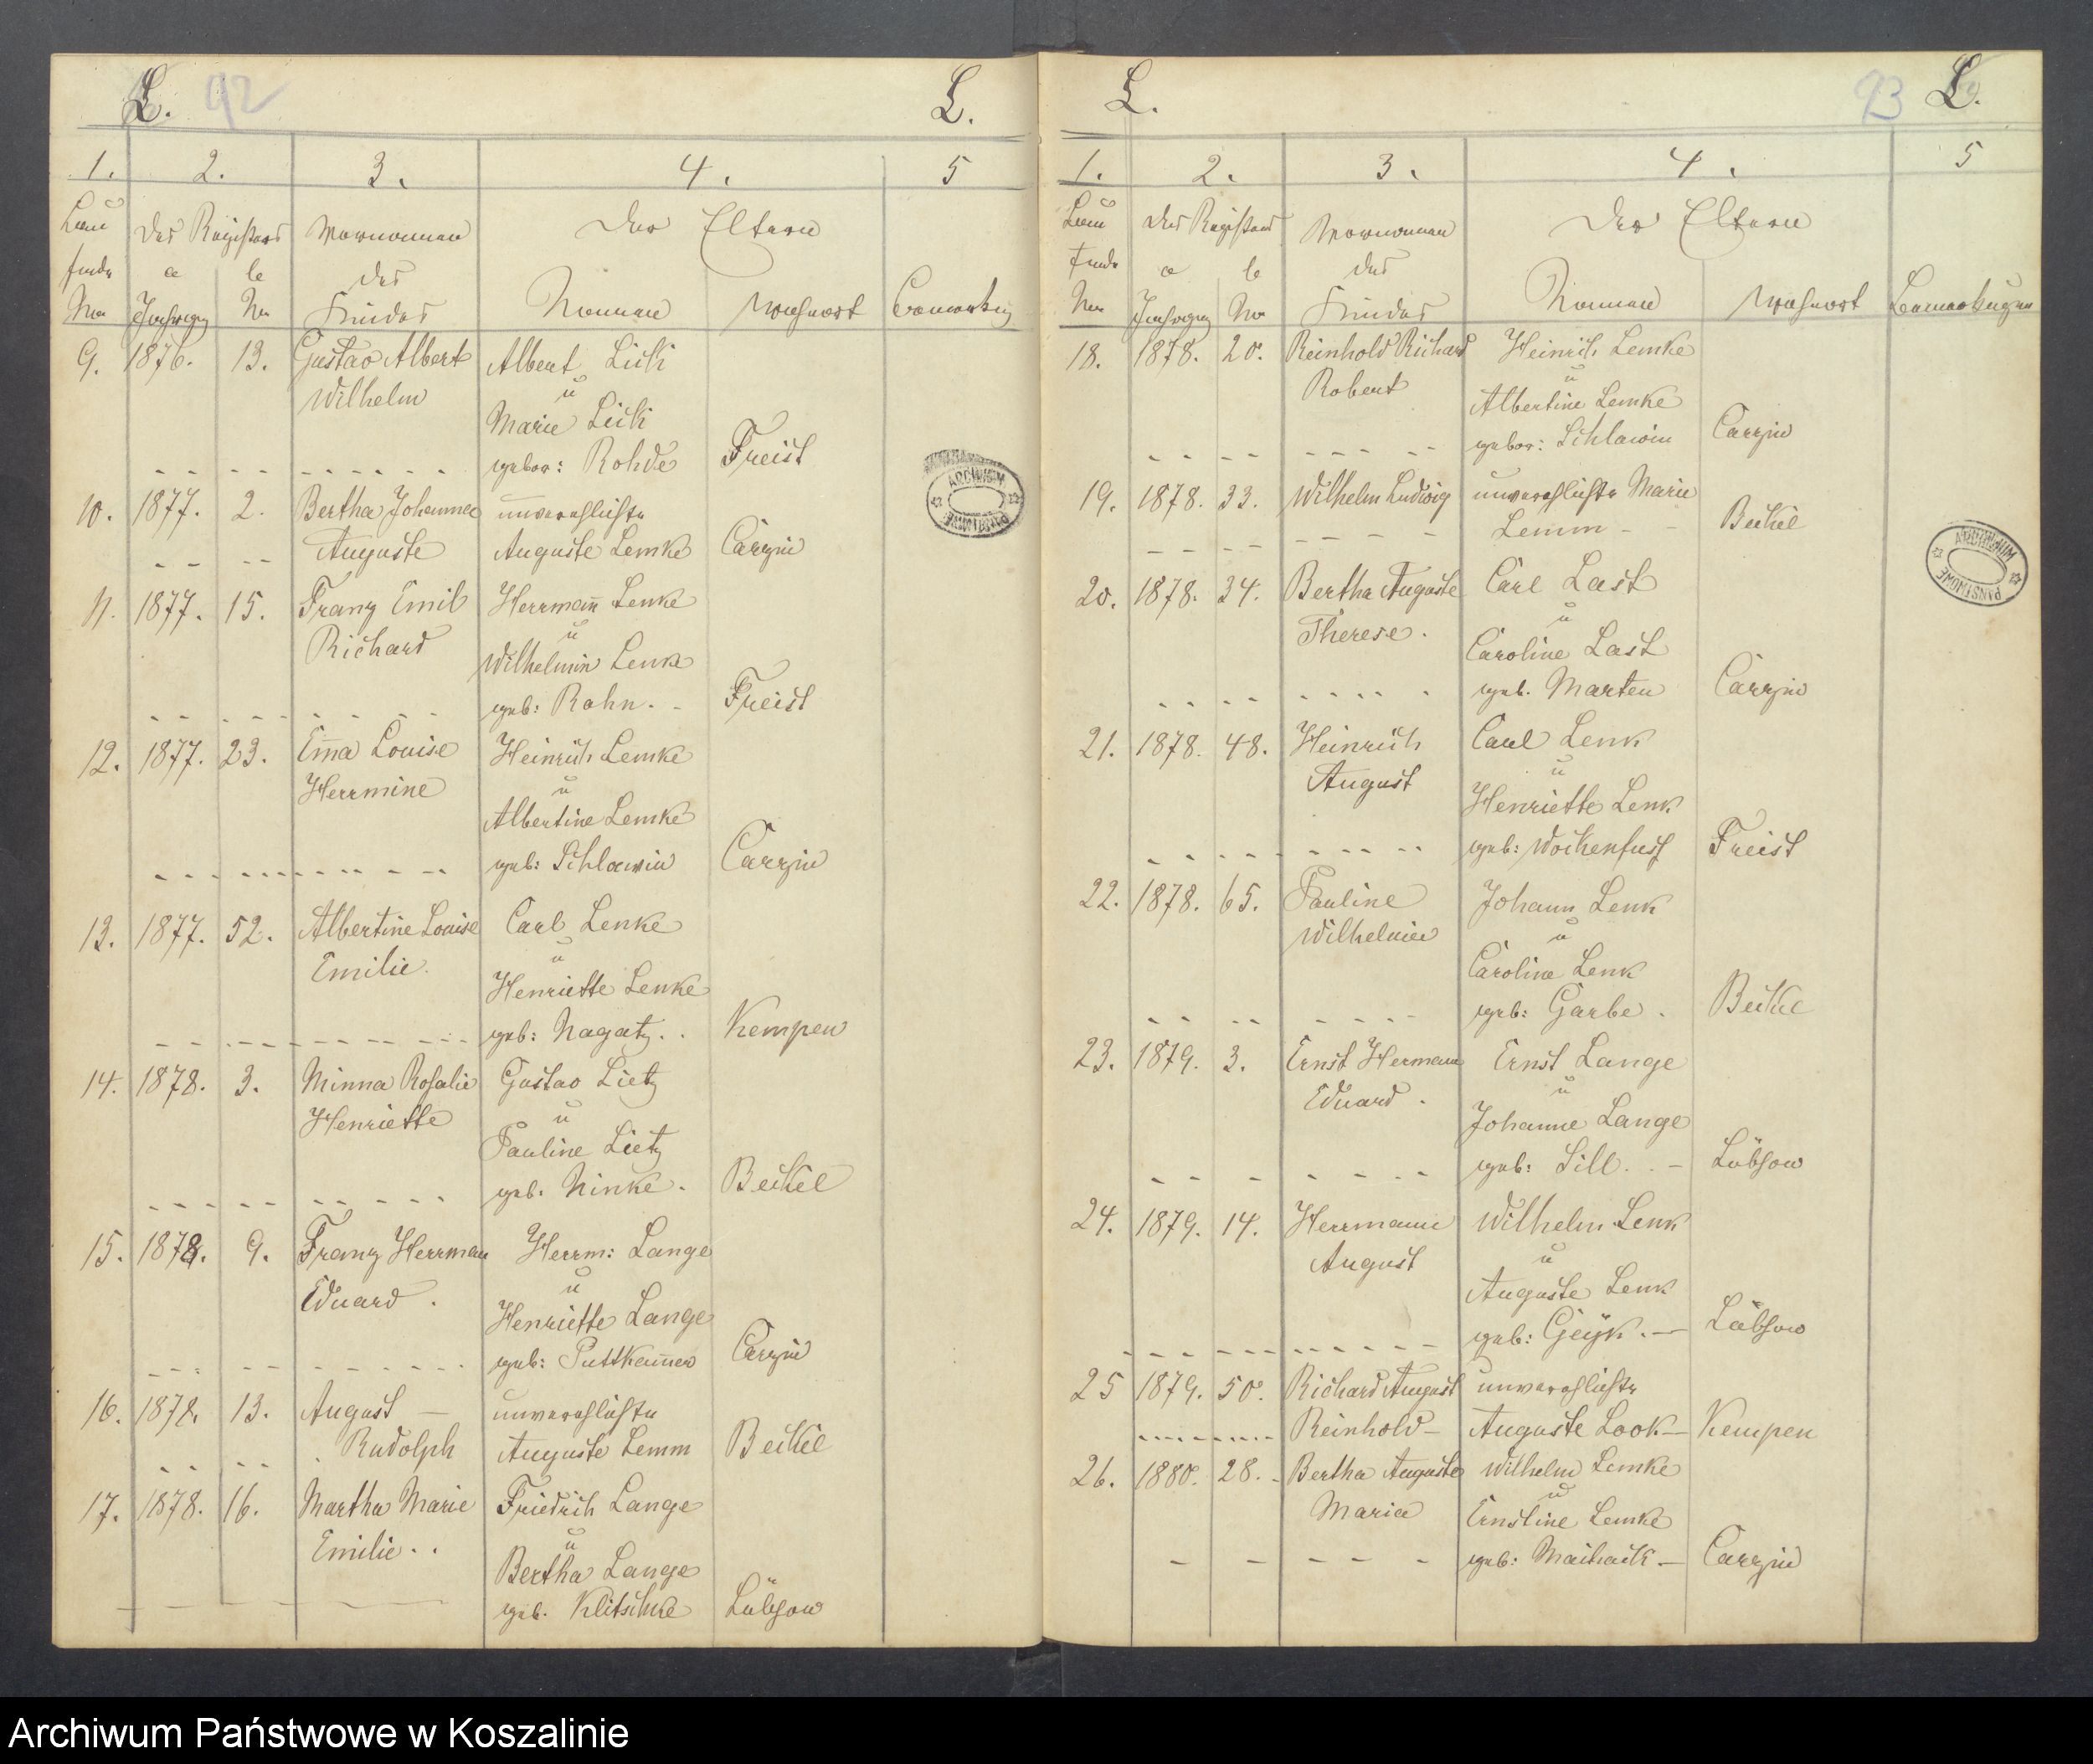 L. 92 L.
1. 2. 3. 4. 5
Lau des Registers Vornamen der Eltern
fende a b des
Nr Jahrgang Nr Kindes Namen Wohnort Bemerkg
9. 1876. 13. Gustav Albert Albert Lick
Wilhelm u
Marie Lick
gebor: Rohde Freist
10. 1877. 2. Bertha Johanna unverehlichte
Auguste Auguste Lemke Carzin
11. 1877. 15. Franz Emil Herrmann Lenke
Richard u
Wilhelmin Lenke
geb: Rahn. Freist
12. 1877. 23. Em̅a Louise Heinrich Lemke
Herrmine u
Albertine Lemke
geb: Schlawin Carzin
13. 1877. 52. Albertine Louise Carl Lenke
Emilie. u
Henriette Lenke
geb: Nagatz. Kempen
14. 1878. 3. Minna Rosalie Gustav Lietz
Henriette u
Pauline Lietz
geb. Ninke. Beckel
15. 1878. 9. Franz Herrman Herrm: Lange
Eduard. u
Henriette Lange
geb: Puttkam̅er Carzin
16. 1878. 13. August — unverehlichte
Rudolph Auguste Lemm Beckel
17. 1878. 16. Martha Marie Friedrich Lange
Emilie.. u
Bertha Lange
geb. Klitschke Lübzow
L. 93 L.
1. 2. 3. 4. 5
Lau des Registers Vornamen der Eltern
fende a b des
Nr Jahrgang Nr Kindes Namen Wohnort Bemerkungen
18. 1878. 20. Reinhold Richard Heinrich Lemke
Robert u
Albertine Lemke
gebor: Schlawin Carzin
19. 1878. 33. Wilhelm Ludwig unverehlichte Marie
Lemm - Beckel
20. 1878. 34. Bertha Auguste Carl Last
Therese. u
Caroline Last
geb. Marten Carzin
21. 1878. 48. Heinrich Carl Lenk
August u
Henriette Lenk
geb: Wockenfuß Freist
22. 1878. 65. Pauline Johann Lenk
Wilhelmine u
Caroline Lenk
geb: Garbe. Beckel
23. 1879. 3. Ernst Hermann Ernst Lange
Eduard. u
Johanne Lange
geb: Sill. - Lübzow
24. 1879. 14. Herrmann Wilhelm Lenk
August u
Auguste Lenk
geb: — Lübzow
25 1879. 50. Richard August unverehlichte
Reinhold - Auguste Look — Kempen
26. 1880. 28. Bertha Auguste Wilhelm Lemke
Maria u
Ernstine Lemke
geb: — Carzin
ARCHIWUM PAŃSTWOWE
ARCHIWUM PAŃSTWOWE
Archiwum Państwowe w Koszalinie